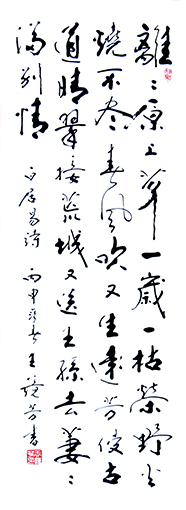 離離原上草一歲一枯榮野火
燒不盡春風吹又生遠芳侵古
道晴翠接荒城又送王孫去萋萋
滿別情
白居易詩 丙申 王 芳書